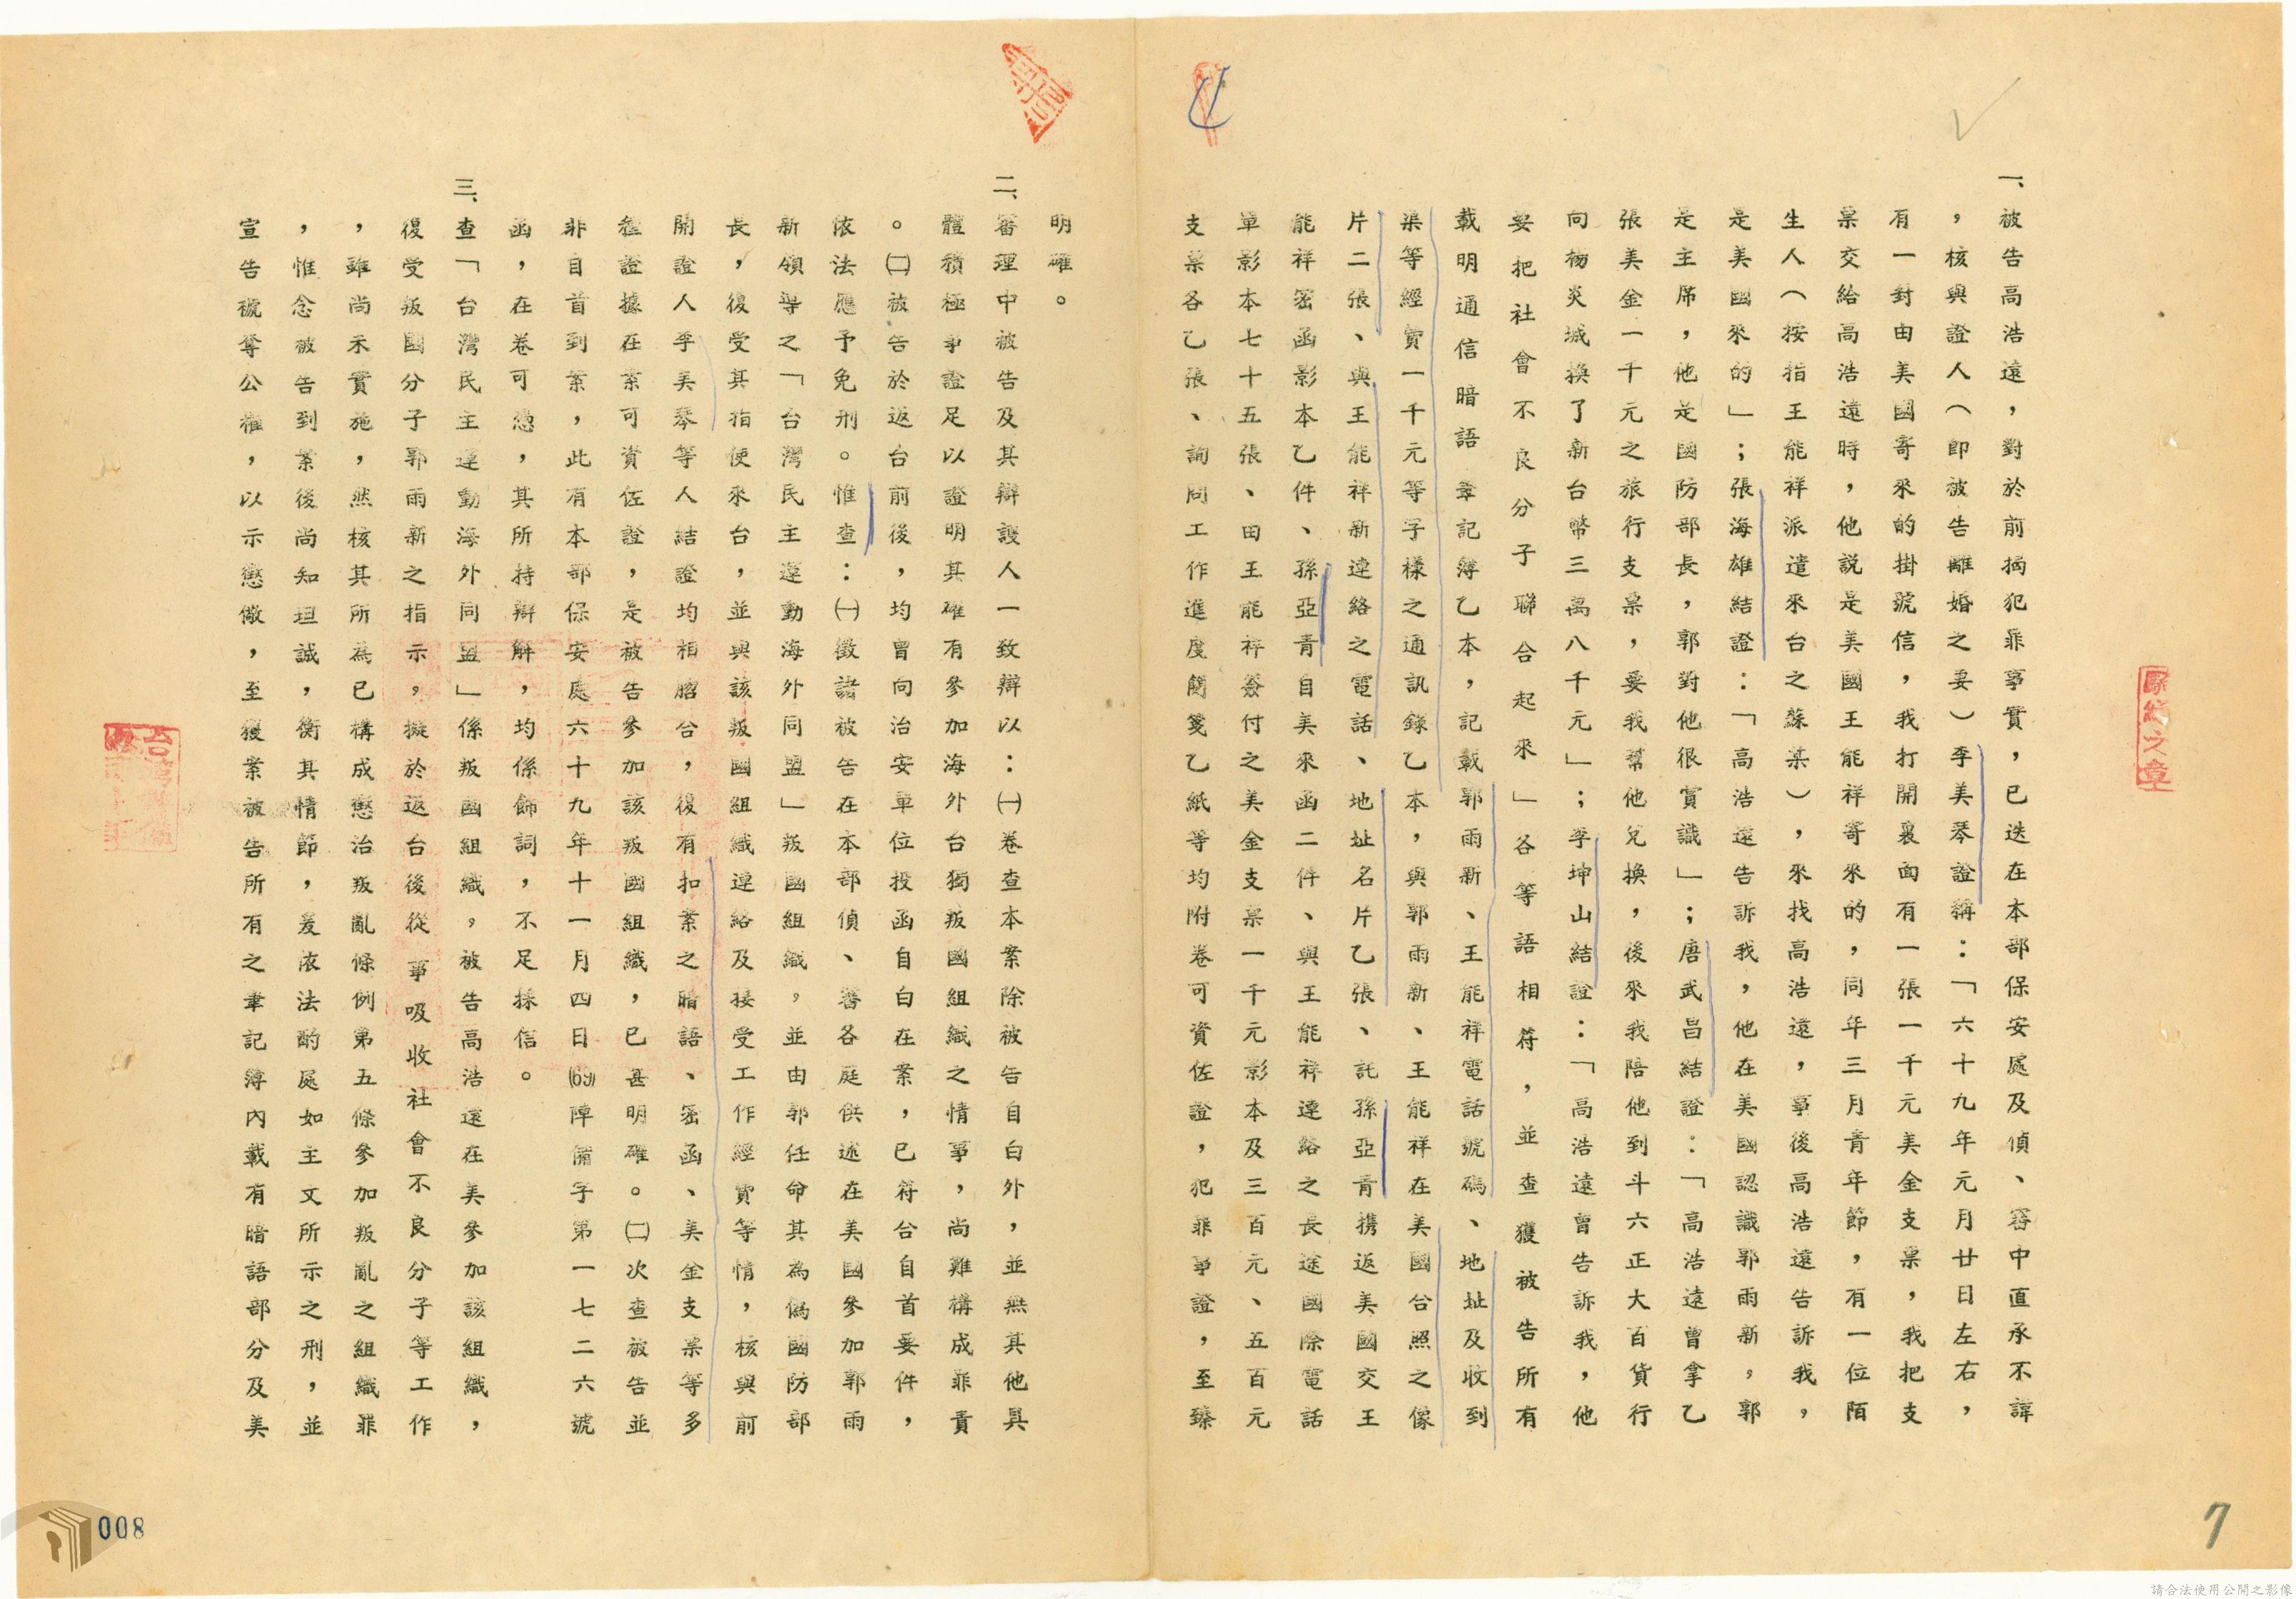 一、被告高浩遠，對於前揭犯罪事實，已迭在本部保安處及偵、審中直承不諱
，核與證人（即被告離婚之妻）李美琴證稱：「六十九年元月廿日左右，
有一對由美國寄來的掛號信，我打開裏面有一張一千元美金支票，我把支
票交給高浩遠時，他說是美國王能祥寄來的，同年三月青年節，有一位陌
生人（按指王能祥派遣來台之蘇某），來找高浩遠，事後高浩遠告訴我，
是美國來的」；張海雄結證：「高浩遠告訴我，他在美國認識郭雨新。郭
是主席，他是國防部長，郭對他很賞識」；唐武昌結證：「高浩遠曾拿乙
張美金一千元之旅行支票，要我幫他兌換，後來我陪他到斗六正大百貨行
向楊炎城換了新台幣三萬八千元」；李坤山結證：「高浩遠曾告訴我，他
要把社會不良分子聯合起來」各等語相符，並查獲被告所有
載明通信暗語筆記簿乙本，記載郭雨新、王能祥電話號碼、地址及收到
渠等經費一千元等字樣之通訊錄乙本，與郭雨新、王能祥在美國合照之像
片二張、與王能祥新連絡之電話、地址名片乙張、託孫亞青携返美國交王
能祥密函影本乙件、孫亞青自美來函二件、與王能祥連絡之長途國際電話
單影本七十五張、由王能祥簽付之美金支票一千元影本及三百元、五百元
支票各乙張、詢問工作進度簡箋乙紙等均附卷可資佐證，犯罪事證，至臻
明確。
二、審理中被告及其辯護人一致辯以：㈠卷查本案除被告自白外，並無其他具
體積極事證足以證明其確有參加海外台獨叛國組織之情事，尚難構成罪責
。㈡被告於返台前後，均曾向治安單位投函自白在案，已符合自首要件，
依法應予免刑。惟查：㈠徵諸被告在本部偵、審各庭供述在美國參加郭雨
新領導之「台灣民主運動海外同盟」叛國組織。並由郭任命其為偽國防部
長，復受其指使來台，並與該叛國組織連絡及接受工作經費等情，核與前
開證人李美琴等人結證均相脗合，復有扣案之暗語、密函、美金支票等多
種證據在案可資佐證，是被告參加該叛國組織，已甚明確。㈡次查被告並
非自首到案，此有本部保安處六十九年十一月四日(69)陣備字第一七二六號
函，在卷可憑，其所持辯解，均係飾詞，不足採信。
三、查「台灣民主運動海外同盟」係叛國組織。被告高浩遠在美參加該組織，
復受叛國分子郭雨新之指示，擬於返台後從事吸收社會不良分子等工作
，雖尚未實施，然核其所為已構成懲治叛亂條例第五條參加叛亂之組織罪
，惟念被告到案後尚知坦誠，衡其情節，爰依法酌處如主文所示之刑，並
宣告褫奪公權，以示懲儆，至獲案被告所有之筆記簿內載有暗語部分及美
7
008
請合法使用公開之影像